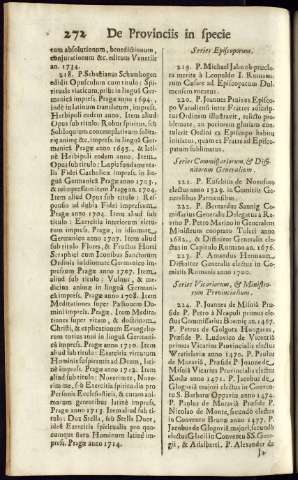 272 De Provinciis in specie
tum absolutionum, benedictionum,
conjurationum &c. editum Venetiis
an. 1734.
218. P. Sebastianus Schambogen
edidit Opusculum cum titulo: Spi-
rituale viaticum, prius in lingua Ger-
manica impress. Pragæ anno 1694,
inde in latinum translatum, impress.
Herbipoli eodem anno. Item aliud
Opus sub titulo: Robur spiritus, seu
Soliloquium contemplativum solita-
riæ animæ, in lingua Ger-
manica Pragæ anno 1695. & lati-
nè Herbipoli eodem anno. Item
Opus sub titulo: Lapis fundamenta-
lis Fidei Catholicæ impress. in lin-
gua Germanica Pragæ anno 1703.
& reimpressum item Pragæ an. 1704.
Item aliud Opus sub titulo: Re-
sponsio ad dubia Fidei impressum
Pragæ anno 1704. Item aliud sub
titulo: Exercitia interiorum electo-
rum impress. Pragæ, in idiomate
Germanico anno 1707. Item aliud
sub titulo: Flores, & Fructus Horti
Seraphici cum Iconibus Sanctorum
Ordinis insidiomate Germanico im-
pressum Pragæ anno 1707. Item
aliud sub titulo: Vulnus, & me-
dicina animæ in lingua Germani-
ca impress. Pragæ anno 1708. Item
Meditationes super Passionem Do-
mini impress. Pragæ. Item Medita-
tiones super vitam, & doctrinam
Christi, & explicationem Evangelio-
rum totius anni in lingua Germani-
ca impress. Pragæ anno 1710. Item
aliud sub titulo: Exercitia
Hominis suspirantis ad Deum, lati-
nè impress. Pragæ anno 1712. Item
aliud sub titulo: Noverim te, Nove-
rim me, seu Exercitia spiritualia pro
Personis Ecclesiasticis, & curam ani-
marum gerentibus latinè impress.
Pragæ anno 1713. Item aliud sub ti-
tulo: Dux Stella, seu Stella Duce,
idest Exercitia spiritualia pro quo-
cumque statu Hominum latinè im-
press. Pragæ anno 1714.
Series Episcoporum.
219. P. Michael Jahn ob præcla-
ra merita à Leopoldo I. Romano-
rum Cæsare ad Episcopatum Dul-
mensem vocatur.
220. P. Joannes Pranzas Episco-
po Varadiensi frater Episcopatum,
Ordinem illustravit, relicto pro-
blemate, an potiorem gloriam con-
tulerit Ordini ex Episcopo habitu
initiatus, quam ex Fratre ad Episco-
patum sublimatus.
Series Commissariorum, & Diffi-
nitorum Generalium.
221. P. Eusebius de Norimbo
electus anno 1529. in Comitiis Ge-
neralibus Parmensibus.
222. P. Bernardus Sannig Co-
missarius Generalis Delegatus à Re-
vmo P. Petro Marino in Generalem
Ministrum cooptato Toleti anno
1682., & Diffinitor Generalis ele-
ctus in Capitulo Romano an. 1676.
223. P. Amandus Hermann,
Diffinitor Generalis electus in Co-
mitiis Romanis anno 1700.
Series Vicariorum, & Ministro-
rum Provincialium.
224. P. Joannes de Misniâ Præ-
side P. Petro à Neapoli primus ele-
ctus Commissarius Bornnæ an. 1467.
P. Petrus de Golgata Hungarus,
Præside P. Ludovico de Vicentia
primus Vicarius Provincialis electus
Wratislaviæ anno 1470. P. Paulus
de Moraviâ, Præside P. Joanne de
Misniâ Vicarius Provincialis electus
Kosla anno 1471. P. Jacobus de
Glogoviâ majori electus in Conven-
tu S. Barbaræ Oppaviæ anno 1474.
P. Paulus de Moraviâ Præside P.
Nicolao de Monte, secundò electus
in Conventu Brunæ anno 1477. P.
Jacobus de Glogoviâ majori, secundò
electus Glacii in Conventu SS. Geor-
gii, & Adalberti. P. Alexander de
Je-